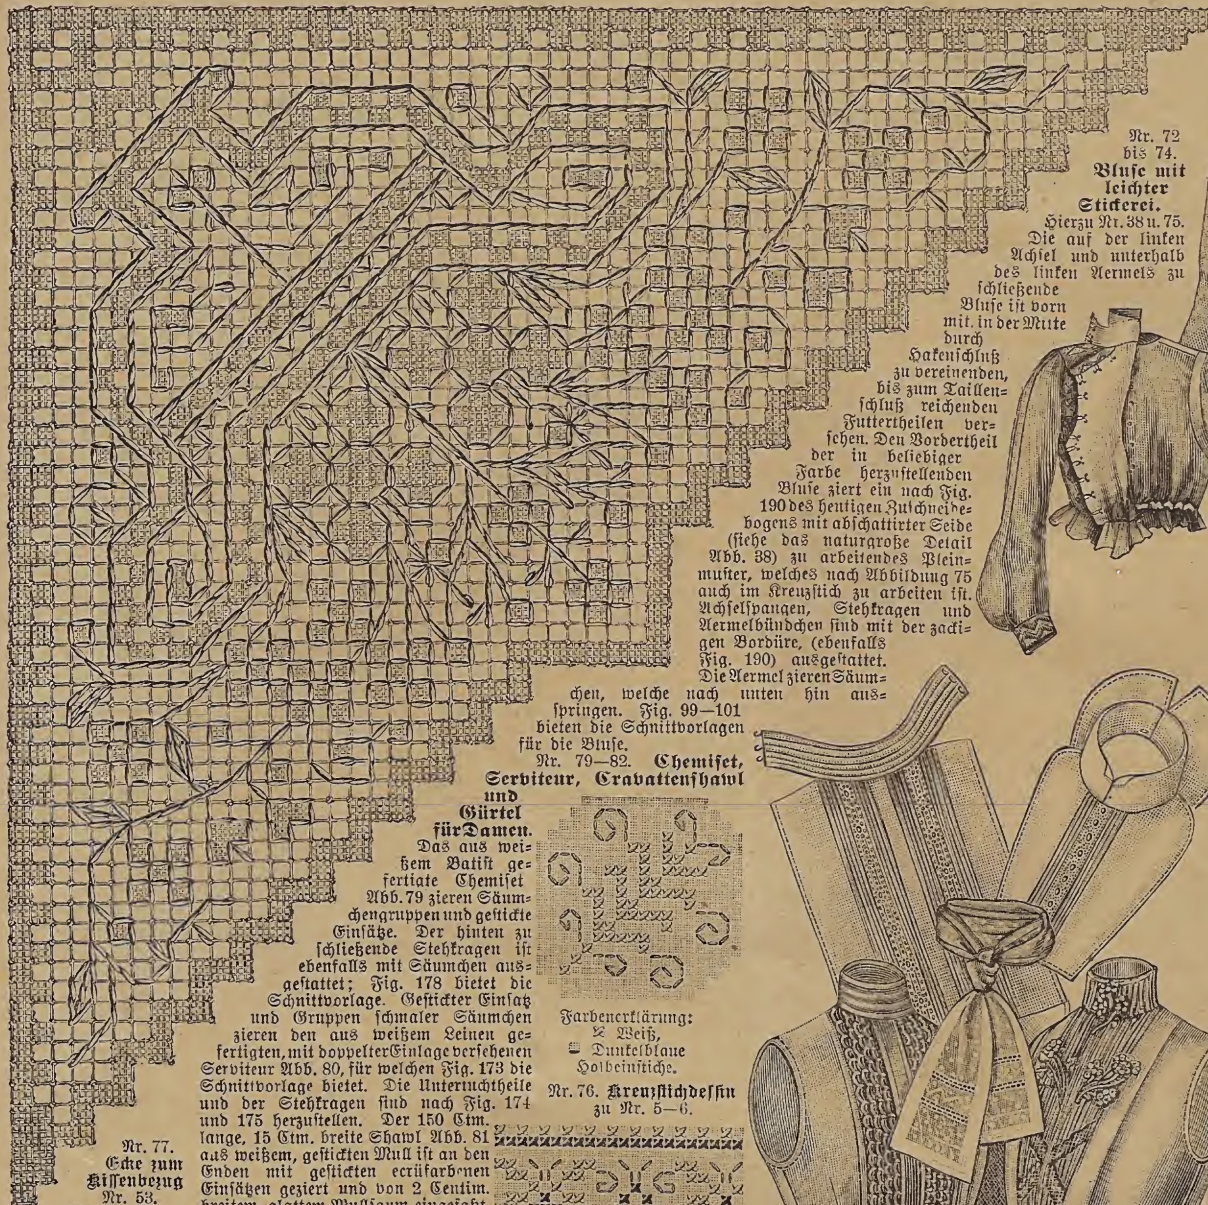 Nr. 72
bis 74.
Bluse mit
leichter
Stickerei.
Hierzu Nr. 38 u. 75.
Die auf der linken
Achsel und unterhalb
des linken Aermels zu
schließende
Bluse ist vorn
mit in der Mitte
durch
Hakenschluß
zu vereinenden,
bis zum Taillen=
schluß reichenden
Futtertheilen ver=
sehen. Den Vordertheil
der in beliebiger
Farbe herzustellenden
Bluse ziert ein nach Fig.
190 des heutigen Zuschneide=
bogens mit abschattirter Seide
(siehe das naturgroße Detail
Abb. 38) zu arbeitendes Plein=
muster, welches nach Abbildung 75
auch im Kreuzstich zu arbeiten ist.
Achselspangen, Stehkragen und
Aermelbündchen sind mit der zacki=
gen Bordüre, (ebenfalls
Fig. 190) ausgestattet.
Die Aermel zieren Säum=
chen, welche nach unten hin aus=
springen. Fig. 99—101
bieten die Schnittvorlagen
für die Bluse.
Nr. 79—82. Chemiset,
Serviteur, Cravattenshawl
und
Gürtel
für Damen.
Das aus wei=
ßem Batist ge=
fertigte Chemiset
Abb. 79 zieren Säum=
chengruppen und gestickte
Einsätze. Der hinten zu
schließende Stehkragen ist
ebenfalls mit Säumchen aus=
gestattet; Fig. 178 bietet die
Schnittvorlage. Gestickter Einsatz
und Gruppen schmaler Säumchen
zieren den aus weißem Leinen ge=
fertigten, mit doppelter Einlage versehenen
Serviteur Abb. 80, für welchen Fig. 173 die
Schnittvorlage bietet. Die Untertuchtheile
und der Stehkragen sind nach Fig. 174
und 175 herzustellen. Der 150 Ctm.
lange, 15 Ctm. breite Shawl Abb. 81
aus weißem, gestickten Mull ist an den
Enden mit gestickten ecrüfarbenen
Einsätzen geziert und von 2 Centim.
breitem, glattem Mullsaum eingefaßt.
Farbenerklärung:
Weiß,
Dunkelblaue
Holbeinstiche.
Nr. 76. Kreuzstichdessin
zu Nr. 5—6.
Nr. 77.
Ecke zum
Kissenbezug
Nr. 53.